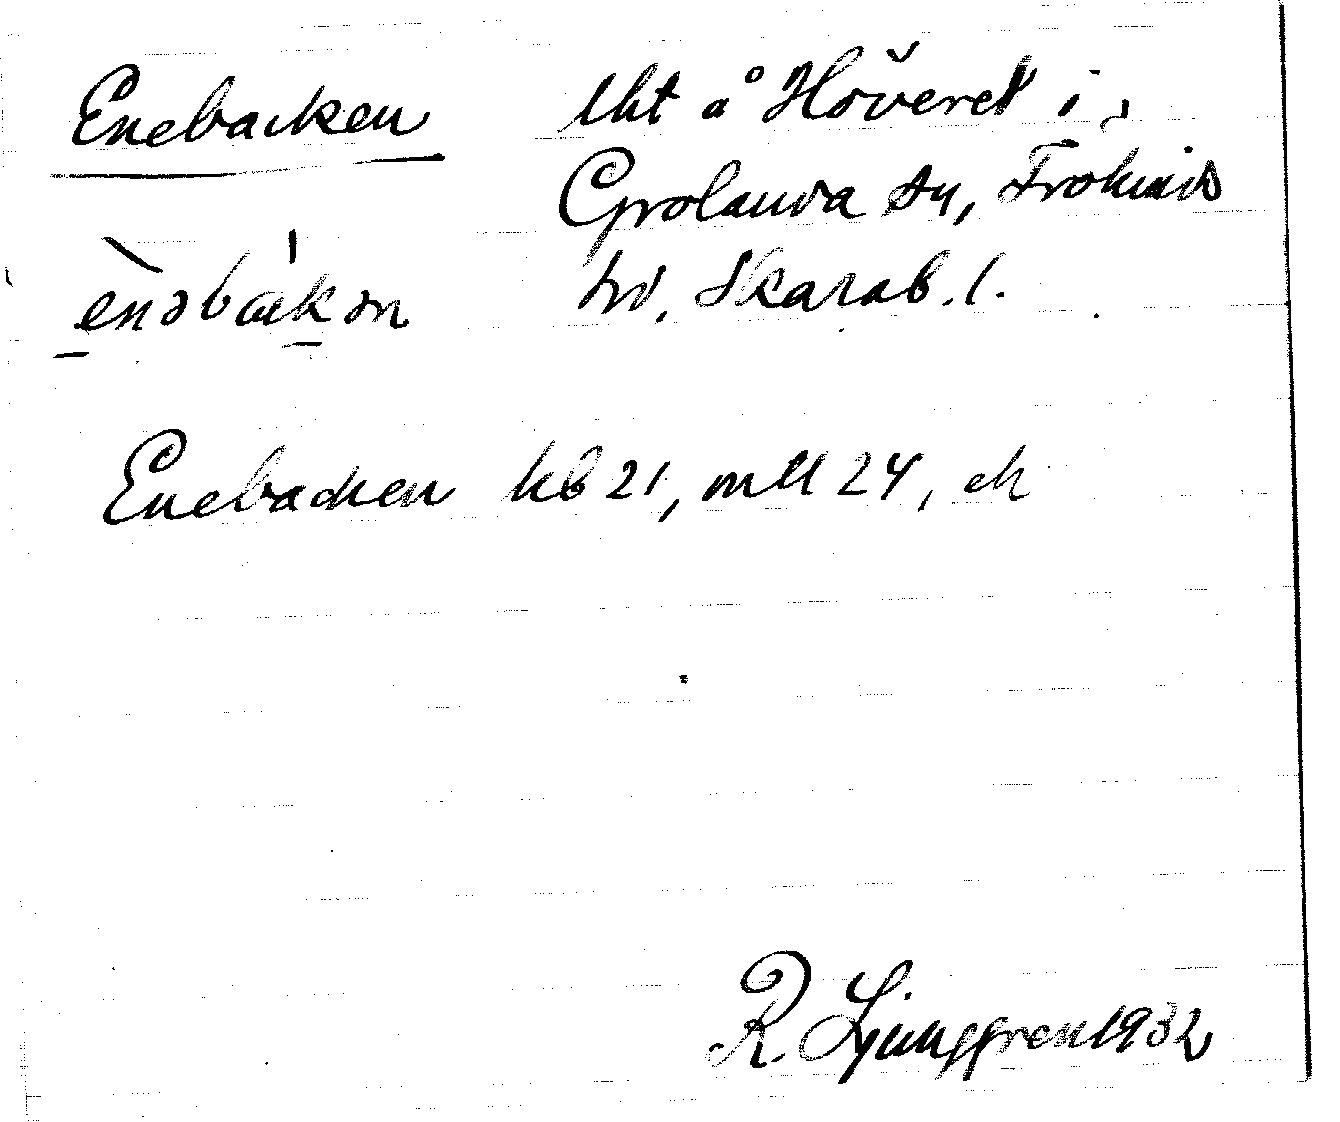 Enebacken lht å Höveret i
Grolanda sn, Frökinds
hd, Skarab. l.
enəbakən
Enebacken kb 21, mtl 24, ek
R. Ljunggren 1932